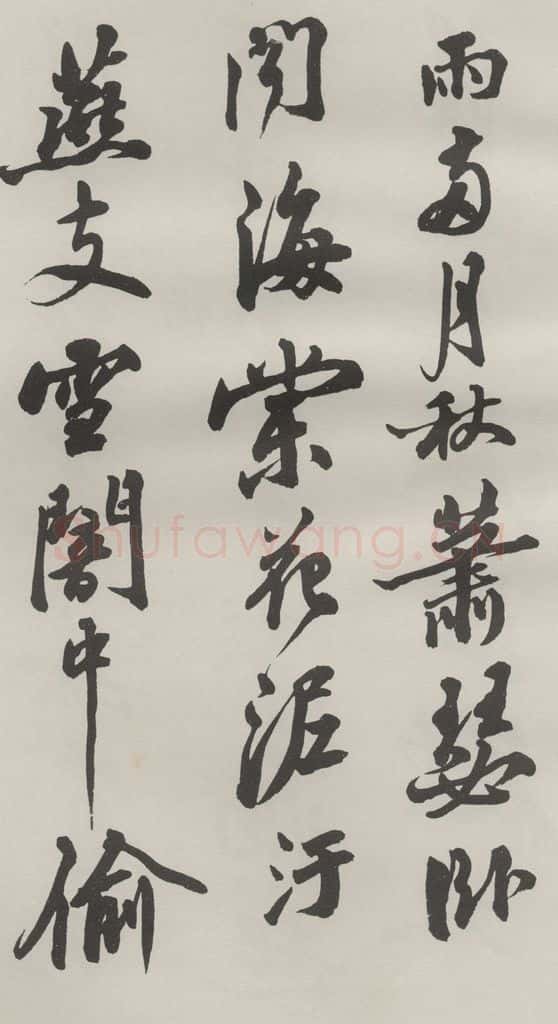 雨兩月秋蕭瑟卧
聞海棠花泥汙
燕支雪闇中偷
Shufawang.CN